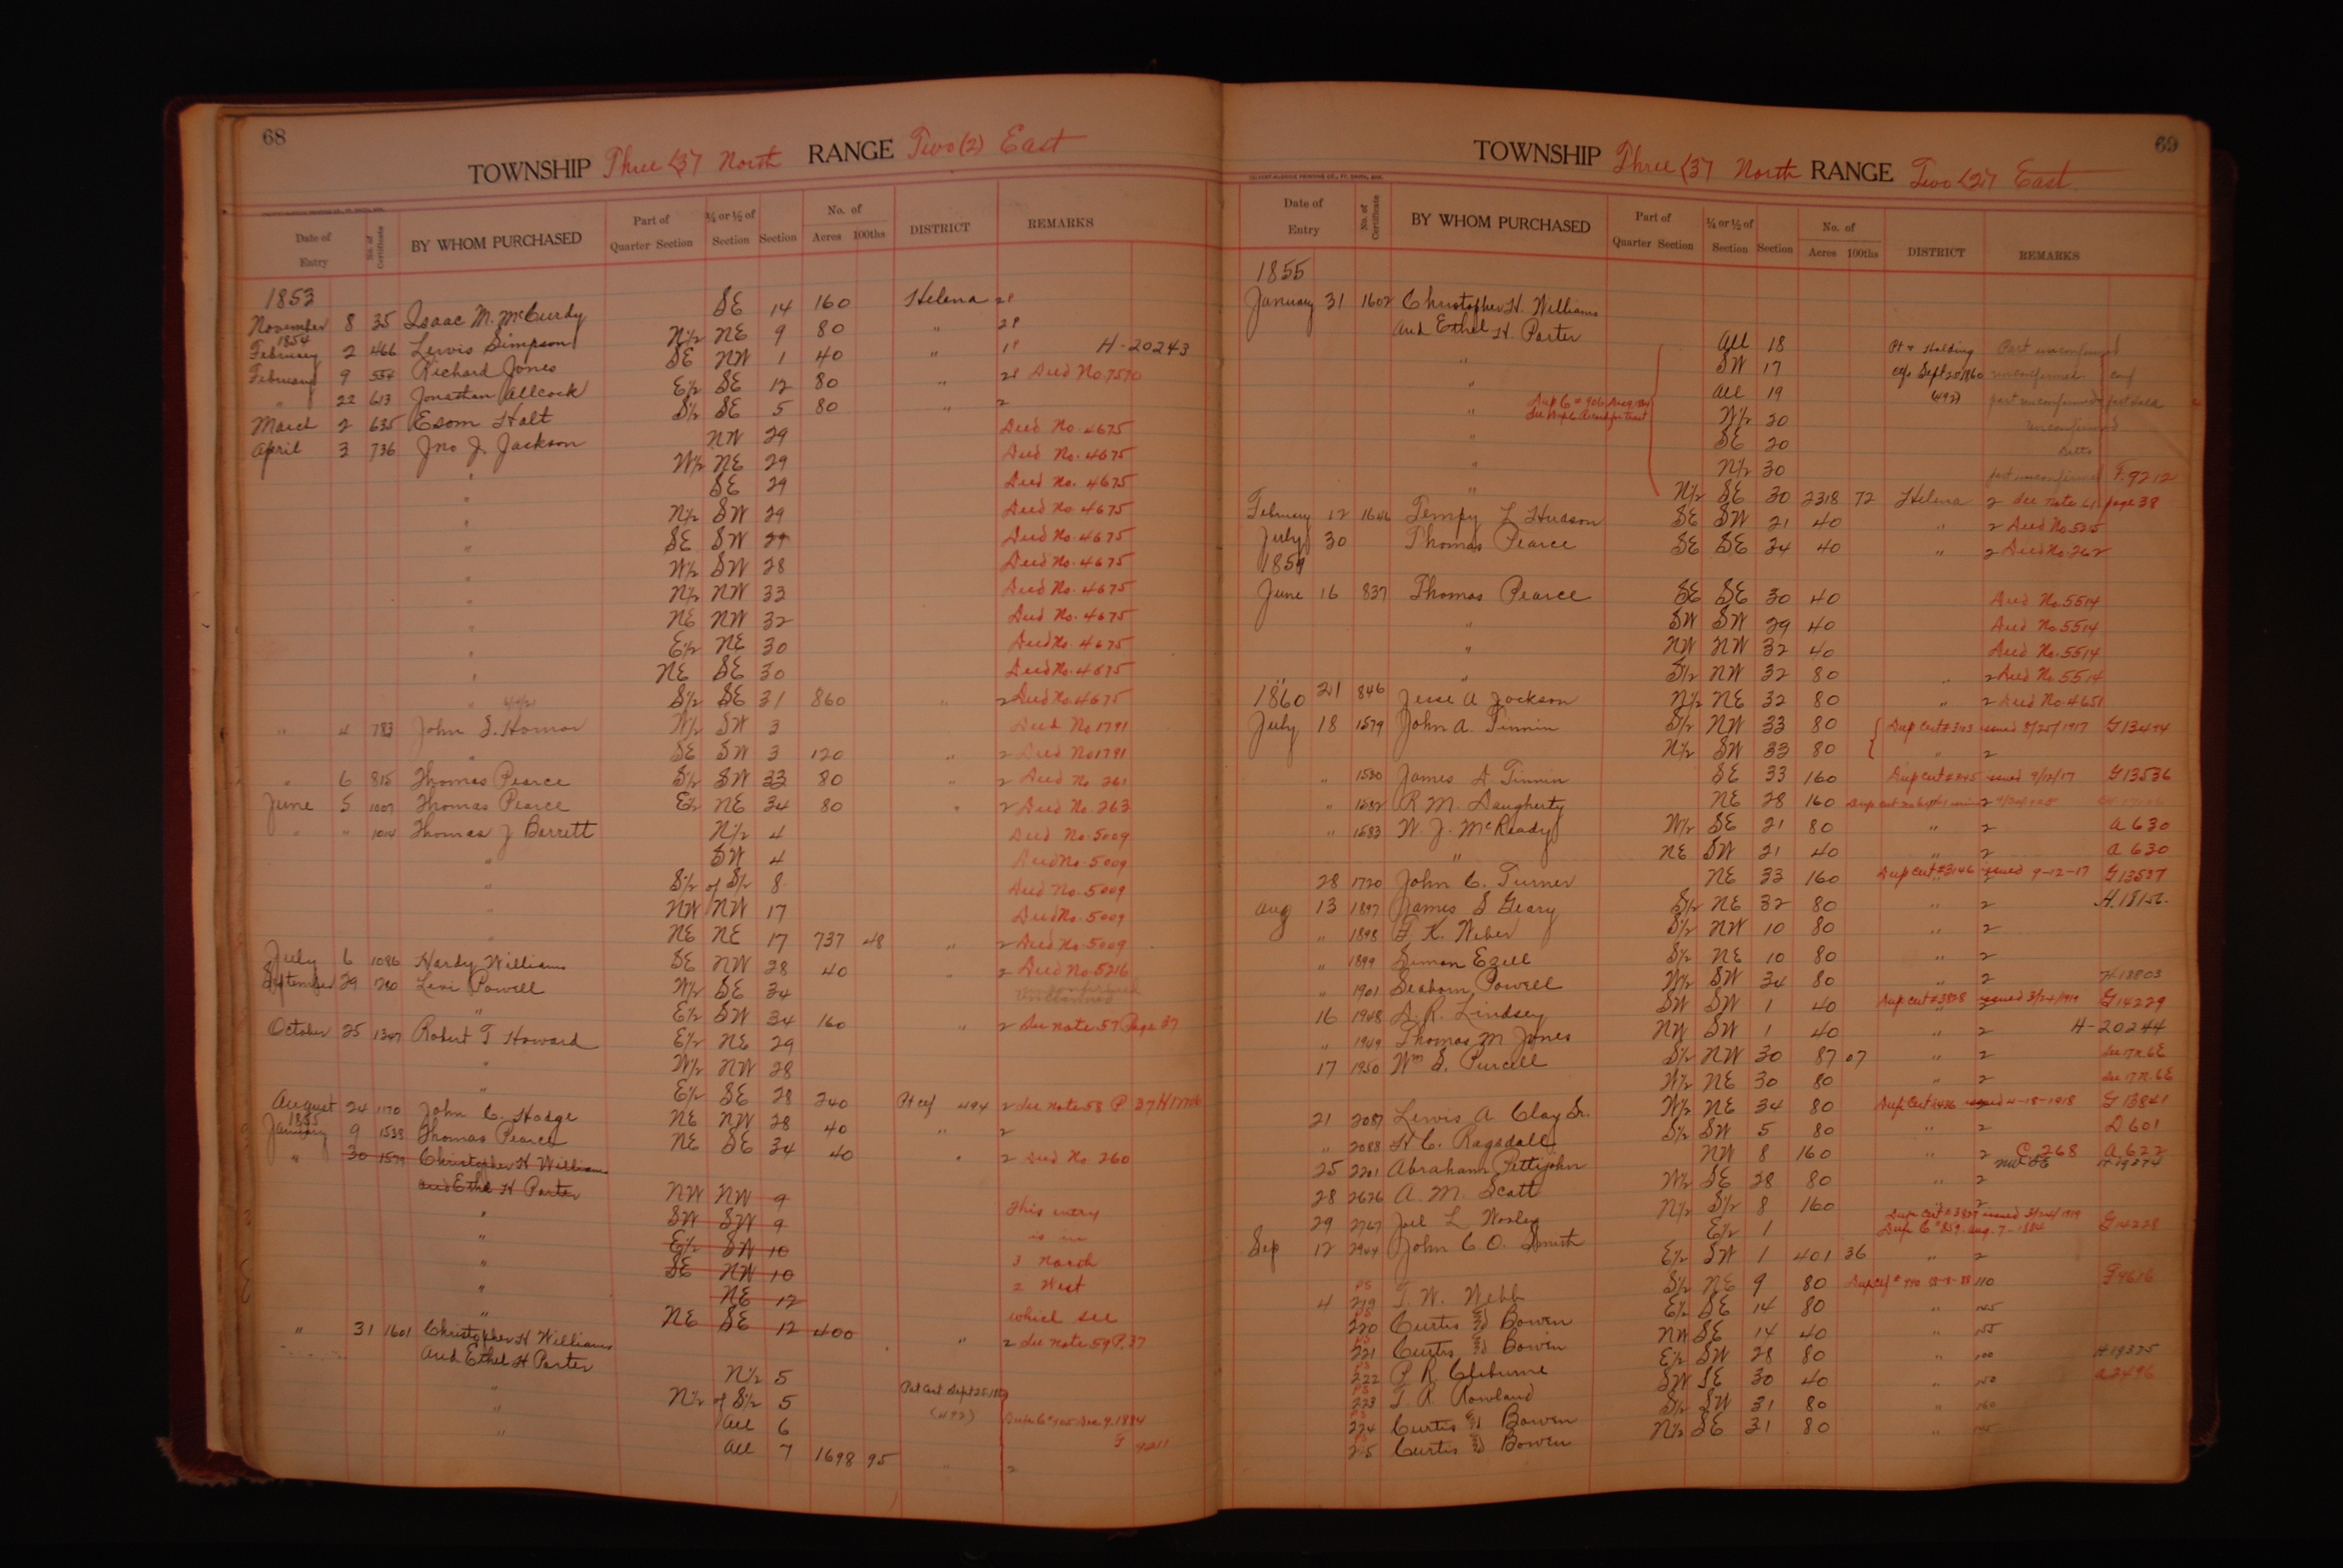 68
TOWNSHIP Three (3) North RANGE Two (2) East
Date of Entry No. of Certificate BY WHOM PURCHASED Part of Quarter Section ¼ or ½ of Section Section No. of Acres 100ths DISTRICT REMARKS
1853
November 8 35 Isaac M. McCurdy SE 14 160 Helena 2
1854
February 2 466 Lewis Simpson N½ NE 9 80 " 2
February 9 554 Richard Jones SE NW 1 40 " 1 H-20243
" 22 613 Jonathan Allcock E½ SE 12 80 " 2 Deed No. 7570
March 2 635 Esom Holt S½ SE 5 80 " 2
April 3 736 Jno J. Jackson NW 29 Deed No. 4675
" W½ NE 29 Deed No. 4675
" SE 29 Deed No. 4675
" N½ SW 29 Deed No. 4675
" SE SW 29 Deed No. 4675
" W½ SW 28 Deed No. 4675
" N½ NW 33 Deed No. 4675
" NE NW 32 Deed No. 4675
" E½ NE 30 Deed No. 4675
" NE SE 30 Deed No. 4675
" S½ SE 31 860 " 2 Deed No. 4675
" 4 783 John S. Homor W½ SW 3 Deed No 1791
" SE SW 3 120 " 2 Deed No 1791
" 6 815 Thomas Pearce S½ SW 33 80 " 2 Deed No 261
June 5 1007 Thomas Pearce E½ NE 34 80 " 2 Deed No. 263
" " 1014 Thomas J Barrett N½ 4 Deed No. 5009
" SW 4 Deed No. 5009
" S½ of S½ 8 Deed No. 5009
" NW NW 17 Deed No. 5009
" NE NE 17 737 48 " 2 Deed No. 5009
July 6 1096 Hardy Williams SE NW 28 40 " 2 Deed No. 5216
September 29 1260 Levi Powell W½ SE 34 unconfirmed
" E½ SW 34 160 " 2 See note 57 Page 37
October 25 1347 Robert T Howard E½ NE 29
" W½ NW 28
" E½ SE 28 240 Pt cef 494 2 See note 58 P. 37
August 24 1170 John C. Hodge NE NW 28 40 " 2
1855
January 9 1538 Thomas Pearce NE SE 34 40 " 2 Deed No 260
" 30 1599 Christopher H Williams
and Ethel H Porter NW NW 9 This entry
" SW SW 9 is in
" E½ SW 10 3 North
" SE NW 10 2 West
" NE 12 which see
" NE SE 12 400 " 2 See note 59 P. 37
" 31 1601 Christopher H Williams
and Ethel H Porter N½ 5
" N½ of S½ 5 Pat Cert. Sept 25. 1860
" All 6 (492) Dup C # 905 Dec 9. 1884
" All 7 1698 95 " 2 F 9211
69
TOWNSHIP Three (3) North RANGE Two (2) East
Date of Entry No. of Certificate BY WHOM PURCHASED Part of Quarter Section ¼ or ½ of Section Section No. of Acres 100ths DISTRICT REMARKS
1855
January 31 1602 Christopher H. Williams
and Ethel H. Porter All 18 Pt & Holding Part unconfirmed
" SW 17 cef Sept 25 1860 unconfirmed conf
" All 19 (492) part unconfirmed
" W½ 20 unconfirmed
" SE 20 Ditto
" N½ 30 part unconfirmed F. 9212
" N½ SE 30 2318 72 Helena 2 See note 61 page 38
February 12 1646 Tempy L Hudson SE SW 21 40 " 2 Deed No. 5215
July 30 Thomas Pearce SE SE 34 40 " 2 Deed No. 262
1859
June 16 837 Thomas Pearce SE SE 30 40 Deed No. 5514
" SW SW 29 40 Deed No. 5514
" NW NW 32 40 Deed No. 5514
" S½ NW 32 80 " 2 Deed No. 5514
" 21 846 Jesse A Jackson N½ NE 32 80 " 2 Deed No. 4651
1860
July 18 1579 John A. Tinnin S½ NW 33 80 Dup Cert # 3143 issued 8/25/1917 G13494
N½ SW 33 80 " 2
" 1580 James A Tinnin SE 33 160 Dup Cert # issued 9/12/17 G13536
" 1582 R. M. Daugherty NE 28 160 2
" 1583 W. J. McReady W½ SE 21 80 " 2 A 630
" NE SW 21 40 " 2 A 630
28 1720 John C. Turner NE 33 160 Dup Cert # 3146 issued 9-12-17 G13537
Aug 13 1897 James S Geary S½ NE 32 80 " 2 H. 18156
" 1898 F. K. Weber S½ NW 10 80 " 2
" 1899 Simon Ezell S½ NE 10 80 " 2
" 1901 Seaborn Powell W½ SW 34 80 " 2 H 18803
16 1948 A. R. Lindsey SW SW 1 40 Dup Cert # 3828 issued 3/24/1919 G14229
" 1949 Thomas M Jones NW SW 1 40 " 2 H-20244
17 1950 Wm S. Purcell S½ NW 30 87 07 " 2 See 17 N. 6E
W½ NE 30 80 " 2 See 17 N. 6E
21 2087 Lewis A Clay Sr. W½ NE 34 80 Dup Cert 3426 issued 4-18-1918 G 13841
" 2088 H C. Ragsdale S½ SW 5 80 " 2 D 601
25 2201 Abraham Pettijohn NW 8 160 " 2 C 268 A 622
28 2626 A. M. Scott W½ SE 28 80 " 2 NW SE H 19274
29 2767 Joel L Worley N½ S½ 8 160 " 2
Sep 12 2944 John C. O. Smith E½ 1 Dup Cert # 3827 issued 3/24/1919
Dup C # 859. Aug. 7-1884 G14228
E½ SW 1 401 36 " 2
4 219 T. W. Webb S½ NE 9 80 110 F9616
220 Curtis & Bowen E½ SE 14 80 "
221 Curtis & Bowen NW SE 14 40 "
222 P. R. Cleburne E½ SW 28 80 " 100 H 19375
223 T. R. Rowland SW SE 30 40 " A 2496
224 Curtis & Bowen S½ SW 31 80 " 160
225 Curtis & Bowen N½ SE 31 80 "